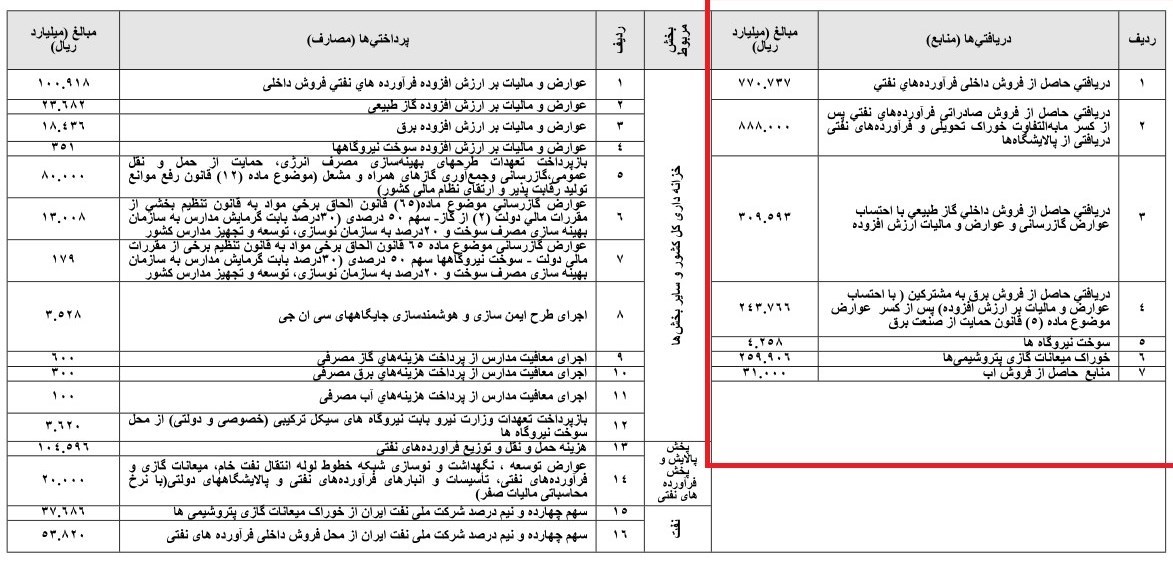 ردیف
دریافتي‌ها (منابع)
مبالغ (میلیارد
ریال)
۱
دریافتي حاصل از فروش داخلی فرآورده‌هاي نفتي
۷۷۰.۷۳۷
۲
دریافتي حاصل از فروش صادراتی فرآورده‌هاي نفتي پس
از کسر مابه‌التفاوت خوراک تحویلی و فرآورده‌های نفتی
دریافتی از پالایشگاه‌ها
۸۸۸.۰۰۰
۳
دریافتي حاصل از فروش داخلي گاز طبیعي با احتساب
عوارض گازرسانی و عوارض و مالیات ارزش افزوده
۳۰۹.۵۹۳
۴
دریافتي حاصل از فروش برق به مشترکین ( با احتساب
عوارض و مالیات بر ارزش افزوده) پس از کسر عوارض
موضوع ماده (۵) قانون حمایت از صنعت برق
۲۴۳.۷۶۶
۵
سوخت نیروگاه ها
۴.۲۵۸
۶
خوراک میعانات گازی پتروشیمی‌ها
۲۵۹.۹۰۶
۷
منابع حاصل از فروش آب
۳۱.۰۰۰
بخش
مربوط
ردیف
پرداختي‌ها (مصارف)
مبالغ (میلیارد
ریال)
خزانه داری کل کشور و سایر بخش‌ها
۱
عوارض و مالیات بر ارزش افزوده فرآورده های نفتي فروش داخلی
۱۰۰.۹۱۸
۲
عوارض و مالیات بر ارزش افزوده گاز طبیعی
۲۳.۶۸۲
۳
عوارض و مالیات بر ارزش افزوده برق
۱۸.۴۳۶
۴
عوارض و مالیات بر ارزش افزوده سوخت نیروگاهها
۳۵۱
۵
بازپرداخت تعهدات طرحهای بهینه‌سازی مصرف انرژی، حمایت از حمل و نقل
عمومی،گازرسانی وجمع‌آوری گازهای همراه و مشعل (موضوع ماده (۱۲) قانون رفع موانع
تولید رقابت پذیر و ارتقای نظام مالی کشور)
۸۰.۰۰۰
۶
عوارض گازرسانی موضوع ماده(۶۵) قانون الحاق برخي مواد به قانون تنظیم بخشي از
مقررات مالي دولت (۲) از گاز- سهم ۵۰ درصدی (۳۰درصد بابت گرمایش مدارس به سازمان
بهینه سازی مصرف سوخت و ۲۰درصد به سازمان نوسازی، توسعه و تجهیز مدارس کشور
۱۳.۰۰۸
۷
عوارض گازرسانی موضوع ماده ۶۵ قانون الحاق برخی مواد به قانون تنظیم برخی از مقررات
مالی دولت - سوخت نیروگاهها سهم ۵۰ درصدی (۳۰درصد بابت گرمایش مدارس به سازمان
بهینه سازی مصرف سوخت و ۲۰درصد به سازمان نوسازی، توسعه و تجهیز مدارس کشور
۱۷۹
۸
اجرای طرح ایمن سازی و هوشمندسازی جایگاههای سی ان جی
۳.۵۲۸
۹
اجرای معافیت مدارس از پرداخت هزینه‌هاي گاز مصرفی
۶۰۰
۱۰
اجرای معافیت مدارس از پرداخت هزینه‌هاي برق مصرفی
۳۰۰
۱۱
اجرای معافیت مدارس از پرداخت هزینه‌هاي آب مصرفی
۱۰۰
۱۲
بازپرداخت تعهدات وزارت نیرو بابت نیروگاه های سیکل ترکیبی (خصوصی و دولتی) از محل
سوخت نیروگاه ها
۳.۶۲۰
بخش
پالایش و
پخش
فرآورده
های نفتی
۱۳
هزینه حمل و نقل و توزیع فرآورده‌های نفتی
۱۰۴.۵۹۶
۱۴
عوارض توسعه ، نگهداشت و نوسازی شبکه خطوط لوله انتقال نفت خام، میعانات گازی و
فرآورده‌های نفتی، تأسیسات و انبارهای فرآورده‌های نفتی و پالایشگاههای دولتی(با نرخ
محاسباتی مالیات صفر)
۲۰.۰۰۰
نفت
۱۵
سهم چهارده و نیم درصد شرکت ملی نفت ایران از خوراک میعانات گازی پتروشیمی ها
۳۷.۶۸۶
۱۶
سهم چهارده و نیم درصد شرکت ملی نفت ایران از محل فروش داخلی فرآورده های نفتی
۵۳.۸۲۰